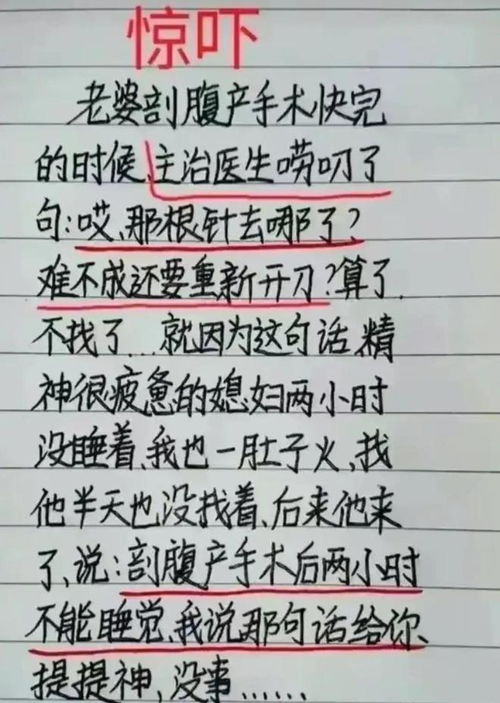 惊吓
老婆剖腹产手术快完
的时候,主治医生唠叨了
句:哎、那根针去哪了?
难不成还要重新开刀?算了,
不找了...就因为这句话,精
神很疲惫的媳妇两小时
没睡着、我也一肚子火、找
他半天也没找着、后来他来
了、说:剖腹产手术后两小时
不能睡觉、我说那句话给你
提提神,没事......